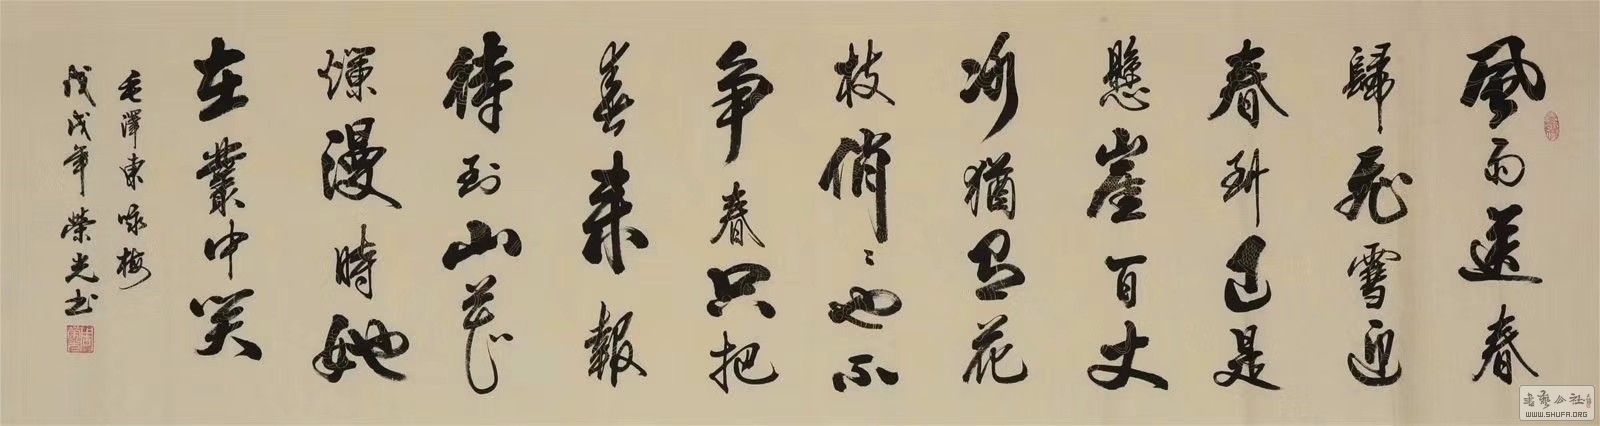 風雨送春
歸飛雪迎
春到已是
懸崖百丈
冰猶有花
枝俏〻也不
争春只把
春来報
待到山花
爛漫時她
在叢中笑
毛澤東咏梅
戊戌年榮光书
書藝公社
WWW.SHUFA.ORG